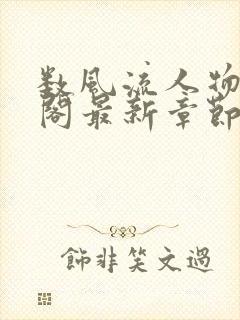 数風流人物
閣最新章節
飾非笑文過